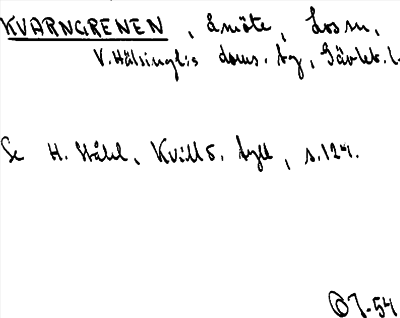 KVARNGRENEN, Enmöte, Los sn,
V. Hälsingl:s doms. tg, Gävleb. l.
Se H. Ståhl, Kvill o. tyll, s. 124.
-54